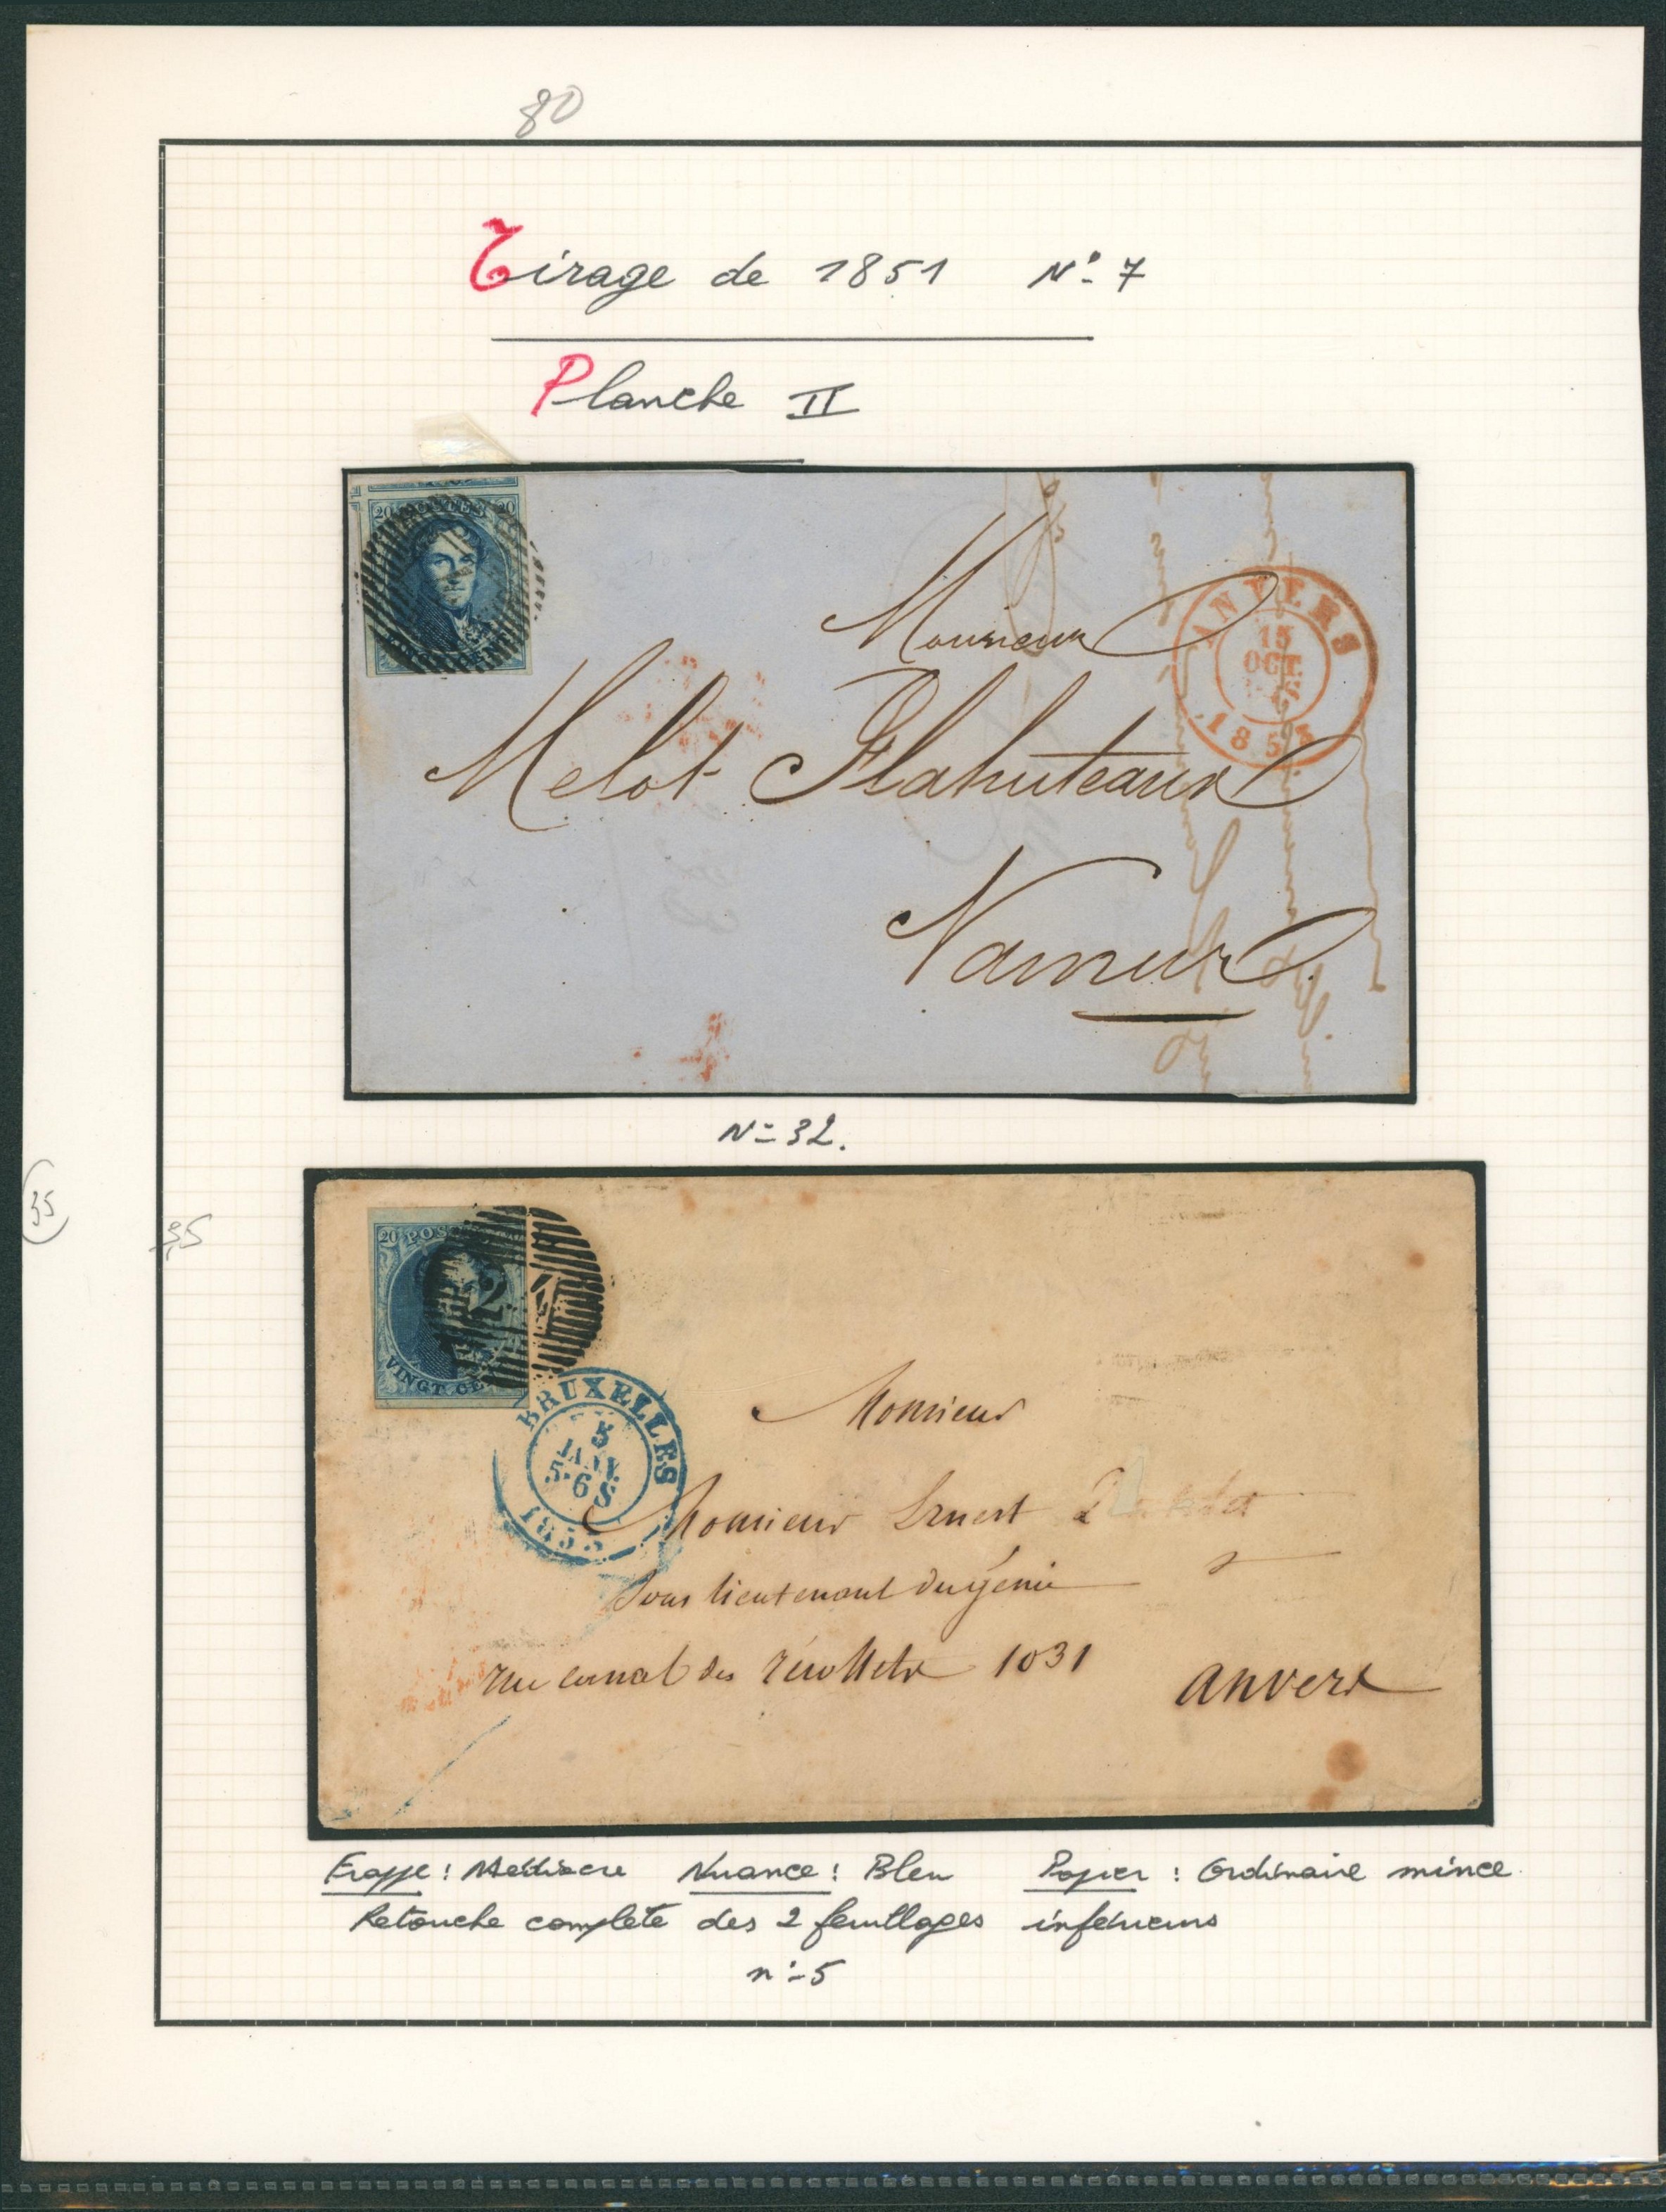 80
Tirage de 1851 N° 7
Planche II
20 POSTES 20
VINGT CENTS
ANVERS
15
OCT.
185
Monsieur
Melot Flahuteaux
Namur
N° 32.
35
35
20 POS
VINGT CE
2
BRUXELLES
5
JANV.
5-6 S.
1853
Monsieur
Monsieur Ernest
Sous lieutenant du génie
rue canal des récollets 1031
Anvers
Frappe : Médiocre Nuance : Bleu Papier : Ordinaire mince
Retouche complète des 2 feuillages inférieurs
n° 5